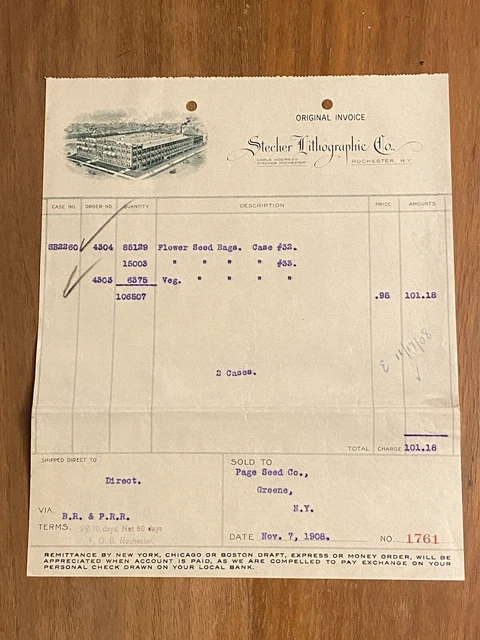 ORIGINAL INVOICE
Stecher Lithographic Co.
CABLE ADDRESS
"STECHER ROCHESTER"
ROCHESTER, N.Y.
CASE NO. ORDER NO. QUANTITY DESCRIPTION PRICE AMOUNTS
SB2260 4304 85129 Flower Seed Bags. Case #32.
15003 " " " " #33.
4303 6375 Veg. " " " "
106507 .95 101.18
2 Cases.
TOTAL CHARGE 101.18
SHIPPED DIRECT TO
Direct.
VIA. B.R. & P.R.R.
TERMS: 10 days, Net 60 days
F. O. B. Rochester.
SOLD TO
Page Seed Co.,
Greene,
N.Y.
DATE Nov. 7, 1908. NO. 1761
REMITTANCE BY NEW YORK, CHICAGO OR BOSTON DRAFT, EXPRESS OR MONEY ORDER, WILL BE
APPRECIATED WHEN ACCOUNT IS PAID, AS WE ARE COMPELLED TO PAY EXCHANGE ON YOUR
PERSONAL CHECK DRAWN ON YOUR LOCAL BANK.